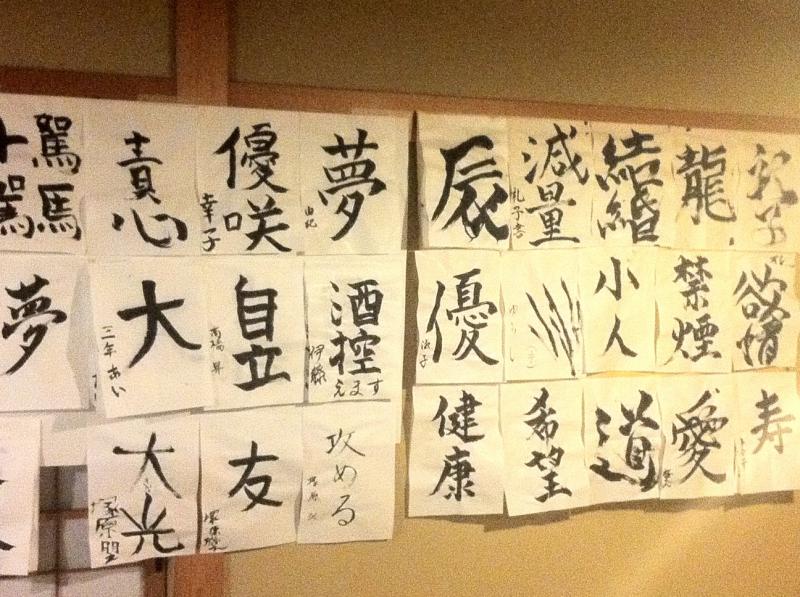 駕
馬
責心
優咲
幸子
夢
由紀
辰
減量
礼子書
結婚
龍
夢
大
三年 あい
自立
酒控
えます
伊藤
優
小人
禁煙
欲情
大光
友
攻める
健康
希望
道
愛
寿